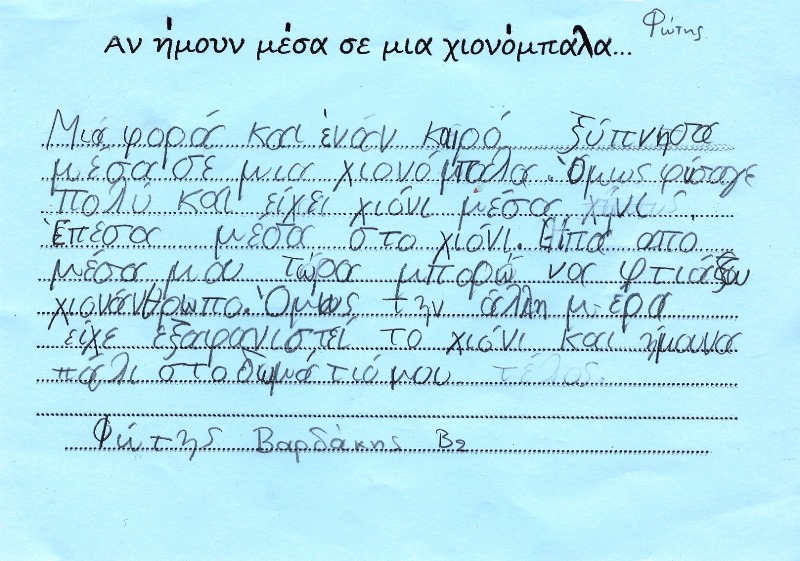 Φώτης
Αν ήμουν μέσα σε μια χιονόμπαλα...
Μιά φορά και ένάν καιρό ξύπνησα
μέσα σε μια χιονόμπαλα. Όμως φύσαγε
πολύ και είχει χιόνι μέσα
Έπεσα μέσα στο χιόνι. Είπα απο
μέσα μου τώρα μπορώ να φτιάξω
χιονάνθρωπο. Όμως την άλλη μέρα
είχε εξαφανιστεί το χιόνι και ήμουνα
πάλι στο δωμάτιό μου τέλος.
Φώτης Βαρδάκης Β2